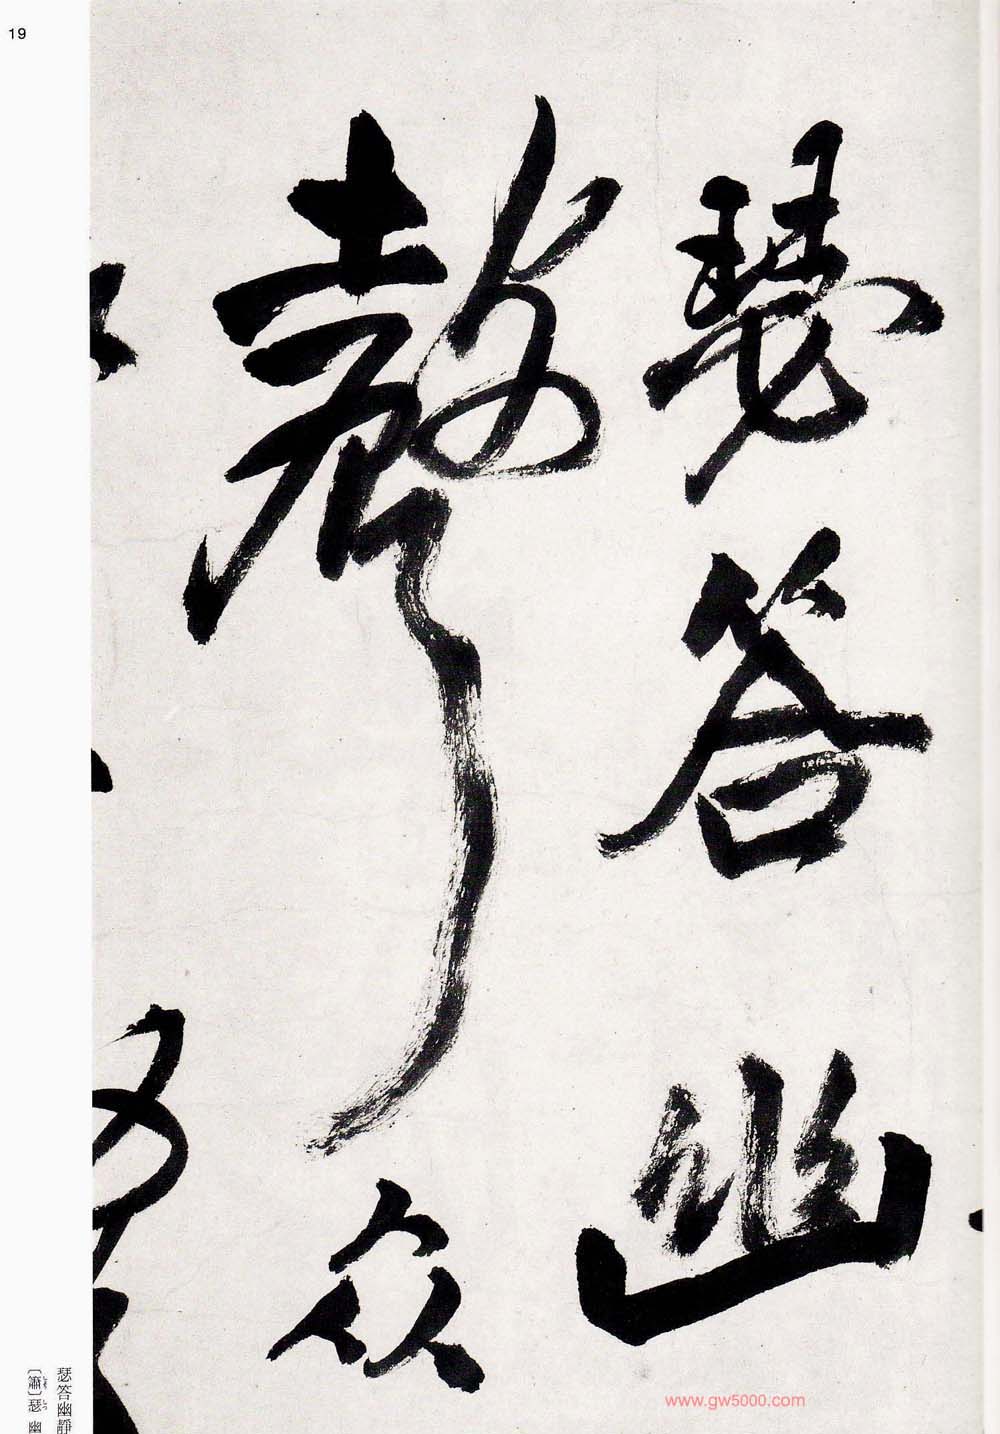 19
瑟答幽
聲众
瑟答幽
〔蕭〕瑟 幽
www.gw5000.com